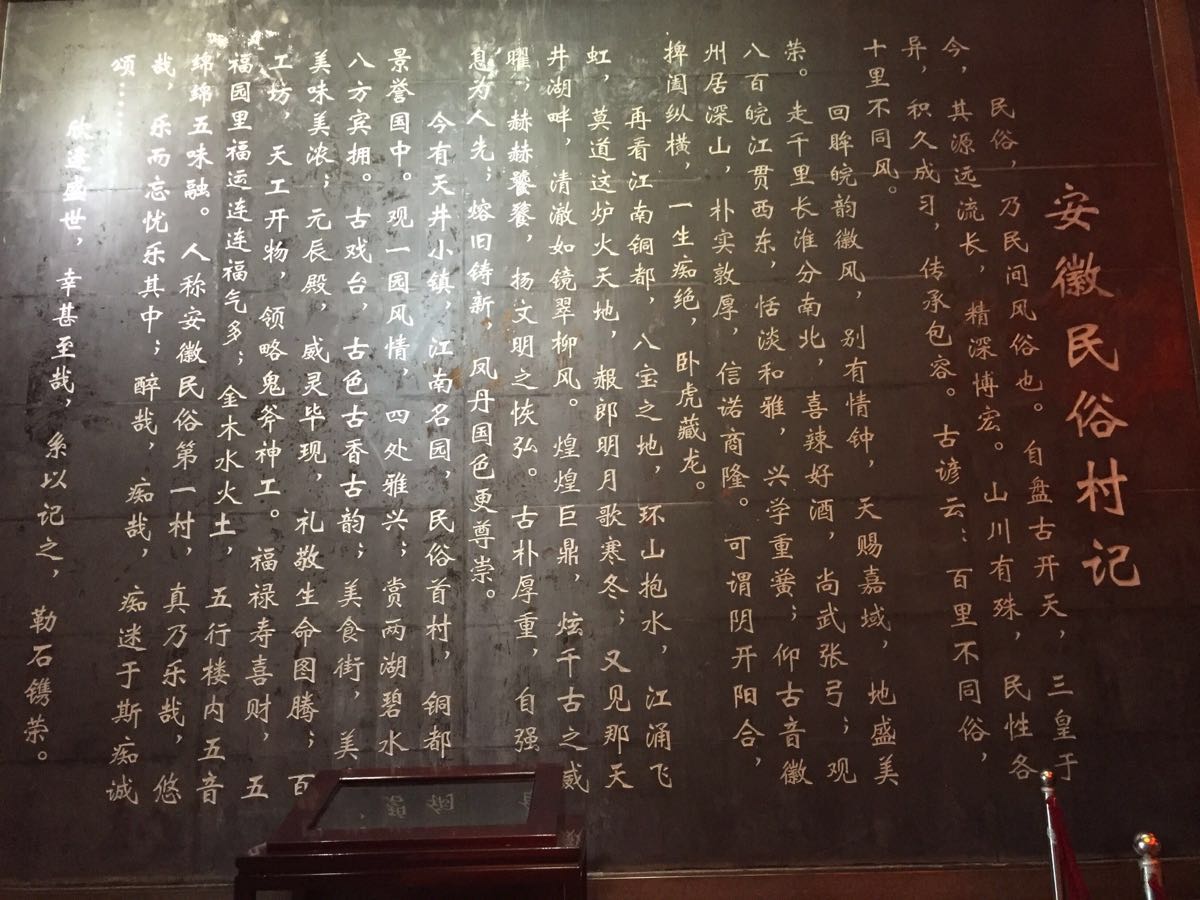 安徽民俗村记
民俗，乃民间风俗也。自盘古开天，三皇于
今，其源远流长，精深博宏。山川有殊，民性各
异，积久成习，传承包容。古谚云：百里不同俗，
十里不同风。
回眸皖韵徽风，别有情钟，天赐嘉域，地盛美
荣。走千里长淮分南北，喜辣好酒，尚武张弓；观
八百皖江贯西东，恬淡和雅，兴学重黉；仰古音徽
州居深山，朴实敦厚，信诺商隆。可谓阴开阳合，
捭阖纵横，一生痴绝，卧虎藏龙。
再看江南铜都，八宝之地，环山抱水，江涌飞
虹，莫道这炉火天地，赧郎明月歌寒冬；又见那天
井湖畔，清澈如镜翠柳风。煌煌巨鼎，炫千古之威
曜；赫赫饕餮，扬文明之恢弘。古朴厚重，自强
息为人先；熔旧铸新，凤丹国色更尊崇。
今有天井小镇，江南名园，民俗首村，铜都
景誉国中。观一园风情，四处雅兴；赏两湖碧水
八方宾拥。古戏台，古色古香古韵；美食街，美
美味美浓；元辰殿，威灵毕现，礼敬生命图腾；百
工坊，天工开物，领略鬼斧神工。福禄寿喜财，五
福园里福运连连福气多；金木水火土，五行楼内五音
绵绵五味融。人称安徽民俗第一村，真乃乐哉，悠
哉，乐而忘忧乐其中；醉哉，痴哉，痴迷于斯痴诚
颂……
欣逢盛世，幸甚至哉，系以记之，勒石镌荣。